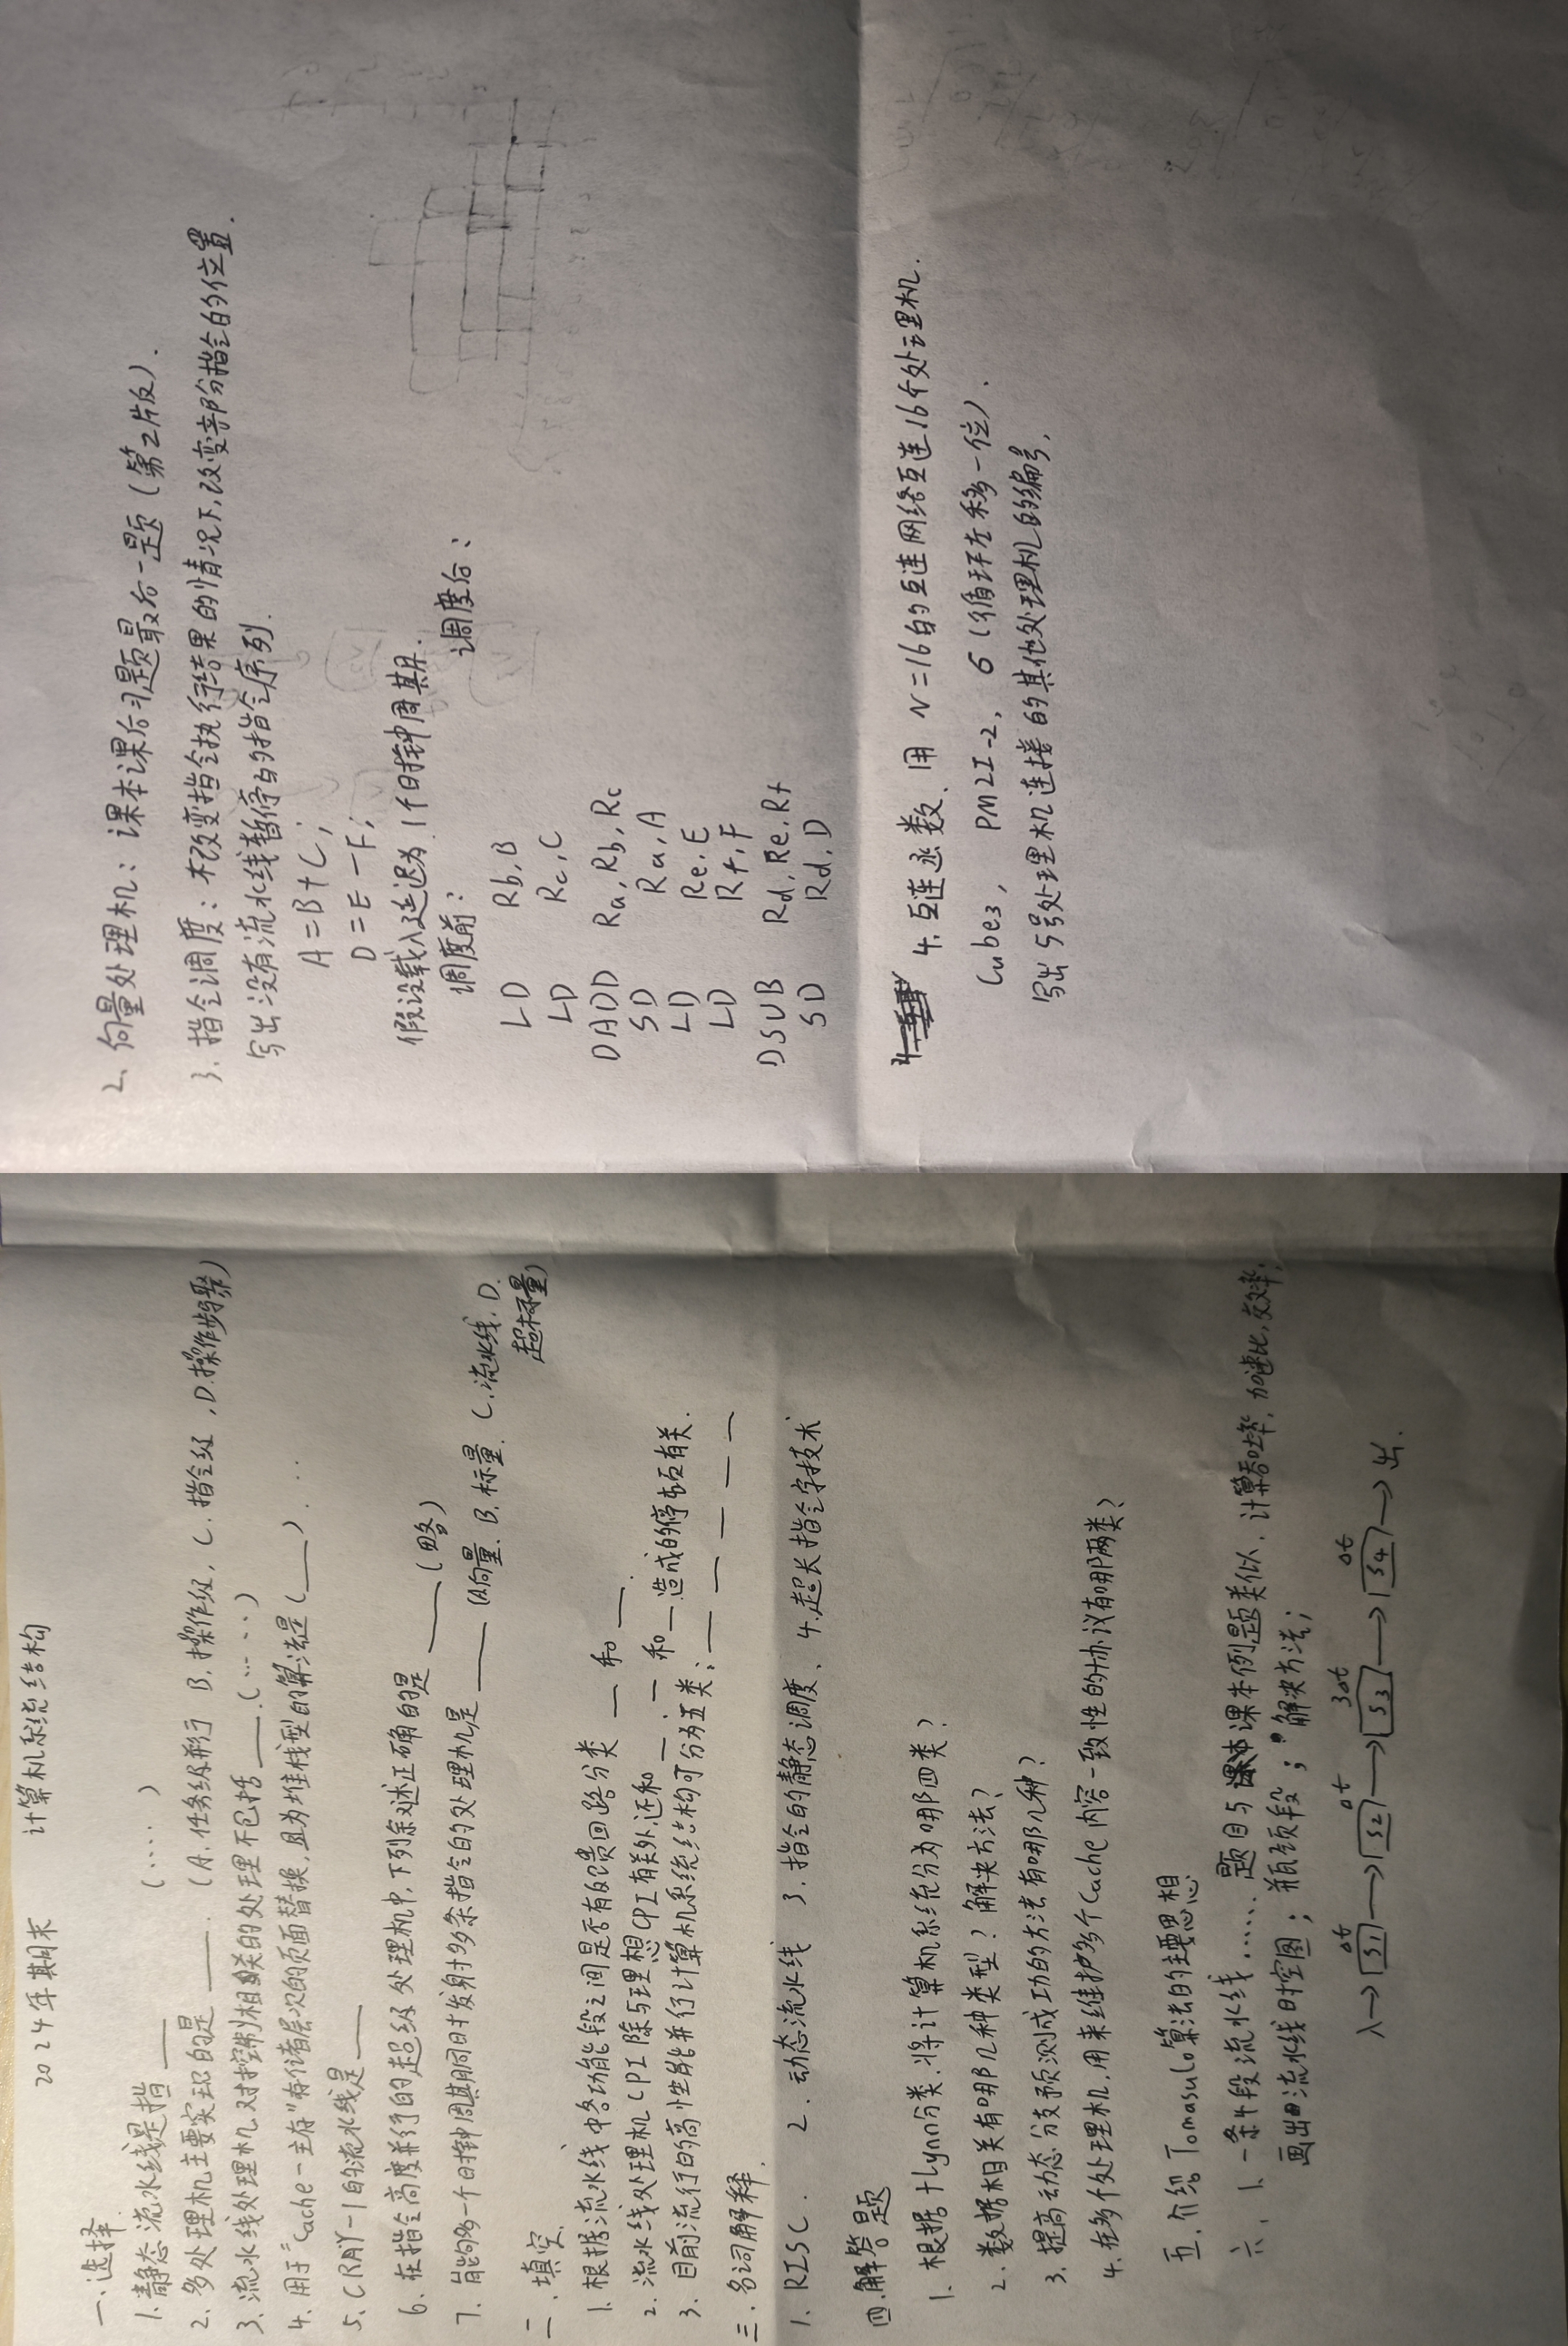 2024年期末 计算机系统结构
一、选择
1. 静态流水线是指 ____ (....)
2. 多处理机主要实现的是 ____. (A. 任务级并行 B. 操作级, C. 指令级, D. 操作步骤)
3. 流水线处理机对控制相联的处理不包括 ____. (....)
4. 用于"Cache-主存"存储层次的页面替换,且为堆栈型的算法是(____)...
5. CRAY-1的流水线是 ____
6. 在指令高度并行的超级处理机中,下列叙述正确的是 ____ (略)
7. 能够多一个时钟周期同时发射多条指令的处理机是 ____ (A向量、B. 标量. C. 流水线. D.
超标量)
二、填空.
1. 根据流水线中各功能段之间是否有反馈回路分类 __ 和 __.
2. 流水线处理机CPI除与理想CPI有关外,还和 __、__ 和 __ 造成的停顿有关.
3. 目前流行的高性能并行计算机系统结构可分为五类: __ __ __ __ __
三、名词解释.
1. RISC. 2. 动态流水线 3. 指令的静态调度、 4. 超长指令字技术
四.解答题
1. 根据flynn分类.将计算机系统分为哪四类?
2. 数据相关有哪几种类型?解决方法?
3. 提高动态分支预测成功的方法有哪几种?
4. 在多个处理机.用来维护多个Cache内容一致性的协议有哪两类?
五.介绍Tomasulo算法的主要思想
六、1. 一条4段流水线......题目与课本例题类似.计算吞吐率,加速比,效率;
画出流水线时空图;瓶颈段;解决方法;
Δt Δt 3Δt Δt
入→S1→S2→S3→S4→出.
2. 向量处理机:课本课后习题最后一题(第2片反).
3. 指令调度:不改变指令执行结果的情况下,改变部分指令的位置.
写出没有流水线暂停的指令序列.
A=B+C;
D=E-F;
假设载入延迟为1个时钟周期.
调度前: 调度后:
LD Rb,B
LD Rc,C
DADD Ra,Rb,Rc
SD Ra,A
LD Re,E
LD Rf,F
DSUB Rd,Re,Rf
SD Rd,D
4. 互连函数、用N=16的互连网络互连16个处理机.
Cube3, PM2I-2, σ(循环左移一位).
写出5号处理机连接的其他处理机的编号.